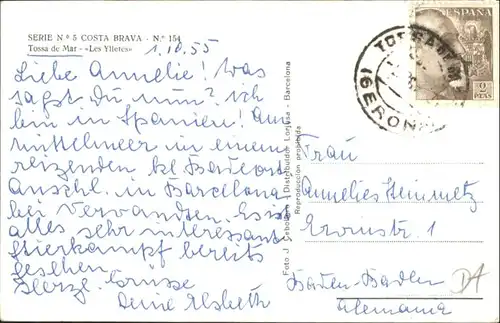 SERIE N.º 5 COSTA BRAVA - N.º 154
Tossa de Mar - «Les Ylletes»
1.10.55
Liebe Annelie! Was
sagst Du nun? ich
bin in Spanien! Am
Mittelmeer in einem
reizenden kl. Badeort
Anschl. in Barcelona
bei Verwandten. Es ist
alles sehr interessant
Stierkampf bereits
gesehen.
Herzl. Grüsse
Deine Elsbeth
Foto J. - Distribuidor - Barcelona
Reproducción prohibida
ESPAÑA
2
PTAS
TOSSA DE MAR
(GERONA)
Frau
Annelies Steinmetz
1
Baden-Baden
Alemania